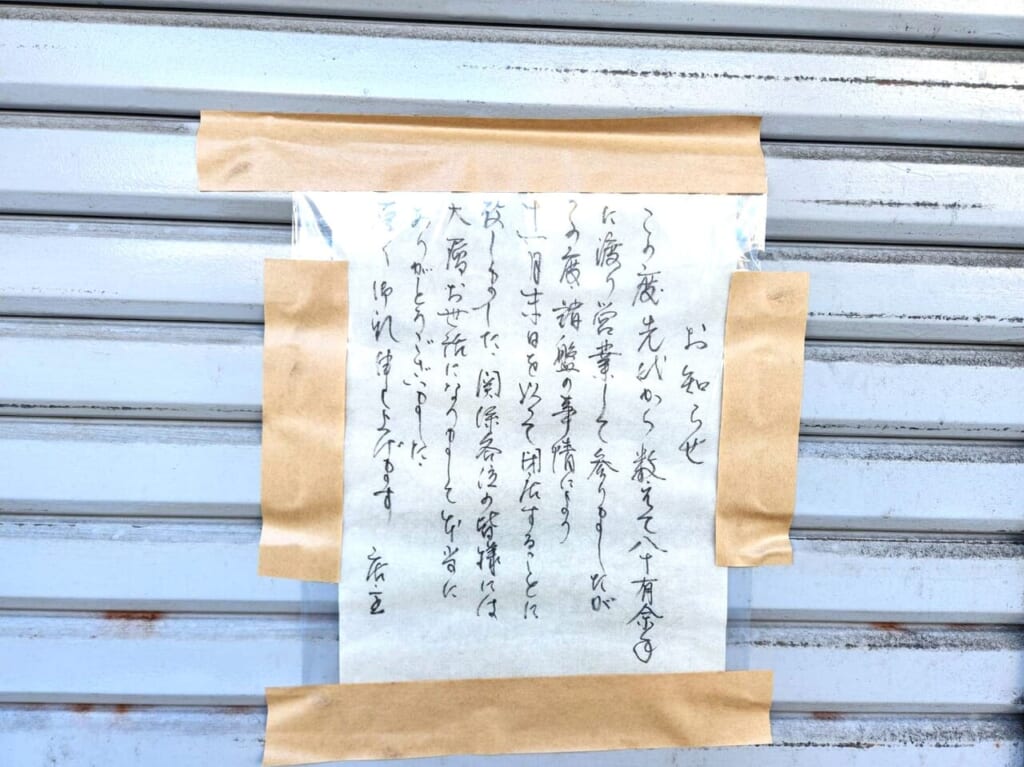 お知らせ
この度先代から数えて八十有余年
に渡り営業して参りましたが
この度諸般の事情により
十一月末日を以て閉店することに
致しました 関係各位の皆様には
大層お世話になりまして本当に
ありがとうございました
厚く御礼申し上げます
店主